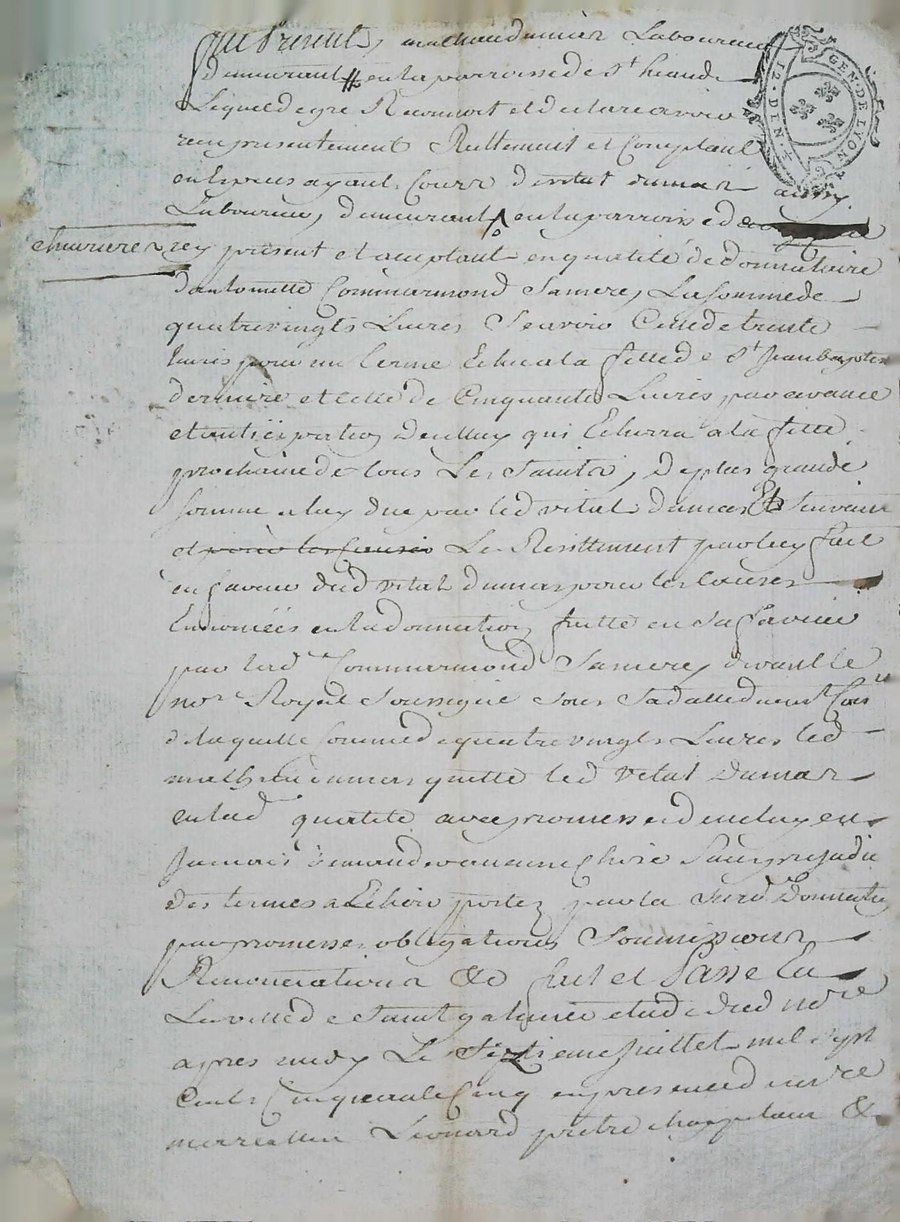 fut Present mathieu dumas Laboureur
demeurant en la parroisse de St heand
Lequel de gré Reconnoit et declare avoir
reçu présentement Reellement et Comptant
en Especes ayant Cours de vital dumas aussy
Laboureur, demeurant en la parroisse de
chevrieres icy présent et acceptant en qualité de donnataire
d'antoinette Commarmond Sa mere, La somme de
quatre vingts Livres Scavoir Celle de trente
Livres pour un terme Echu a la fette de St Jean baptiste
derniere et celle de Cinquante Livres par avance
et anticipation de celluy qui Echerra a la fette
prochaine de tous Les Saints, de plus grande
somme a luy due par led vital dumas Et Suivant
et pour les Causes Le Resittement par luy fait
en faveur dud vital dumas pour les causes
Enoncées en la donnation faitte en Sa faveur
par lad Commarmond Sa mere, devant le
nore Royal Soussigné Sous Sa datte deuemt Conlé
de laquelle Somme de quatre vingts Livres led
mathieu dumas quitte led vital dumas
en lad qualité avec promesse de ne luy en
Jamais demander aucune Chose Sans prejudice
des termes a Echoir portez par la Susd Donnation
par promesses obligations Soumissions
Renonciations &c fait et Passé En
La ville de Saint galmier etude dud nore
apres midy Le Septieme Juillet mil Sept
Cents Cinquante Cinq en presence de mre
Leonard prêtre chapelain &
GEN·DE·LYON
12·DIN·4